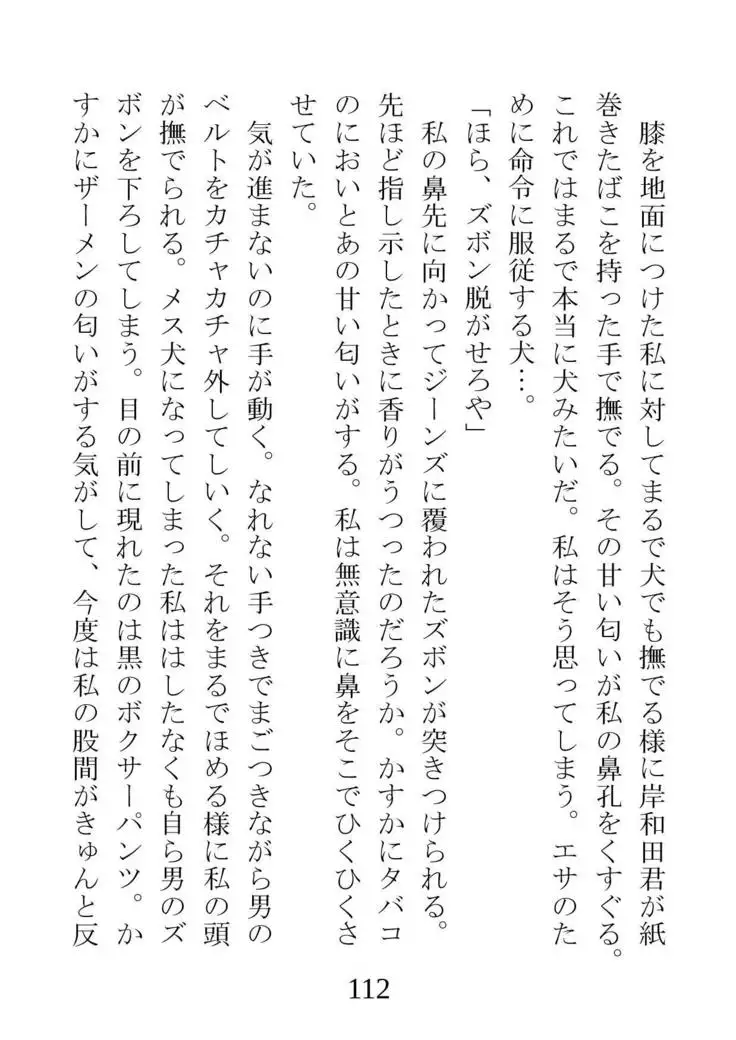 膝を地面につけた私に対してまるで犬でも撫でる様に岸和田君が紙
巻きたばこを持った手で撫でる。その甘い匂いが私の鼻孔をくすぐる。
これではまるで本当に犬みたいだ。私はそう思ってしまう。エサのた
めに命令に服従する犬…。
「ほら、ズボン脱がせろや」
私の鼻先に向かってジーンズに覆われたズボンが突きつけられる。
先ほど指し示したときに香りがうつったのだろうか。かすかにタバコ
のにおいとあの甘い匂いがする。私は無意識に鼻をそこでひくひくさ
せていた。
気が進まないのに手が動く。なれない手つきでまごつきながら男の
ベルトをカチャカチャ外してしいく。それをまるでほめる様に私の頭
が撫でられる。メス犬になってしまった私ははしたなくも自ら男のズ
ボンを下ろしてしまう。目の前に現れたのは黒のボクサーパンツ。か
すかにザーメンの匂いがする気がして、今度は私の股間がきゅんと反
112